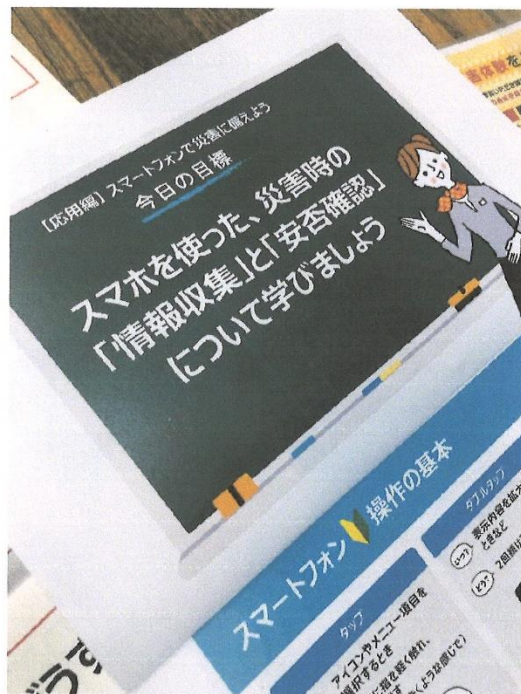 [応用編] スマートフォンで災害に備えよう
今日の目標
スマホを使った、災害時の
「情報収集」と「安否確認」
について学びましょう
スマートフォン 操作の基本
タップ
アイコンやメニュー項目を
選択するとき
ダブルタップ
いつ?
表示内容を拡大
ときなど
どう?